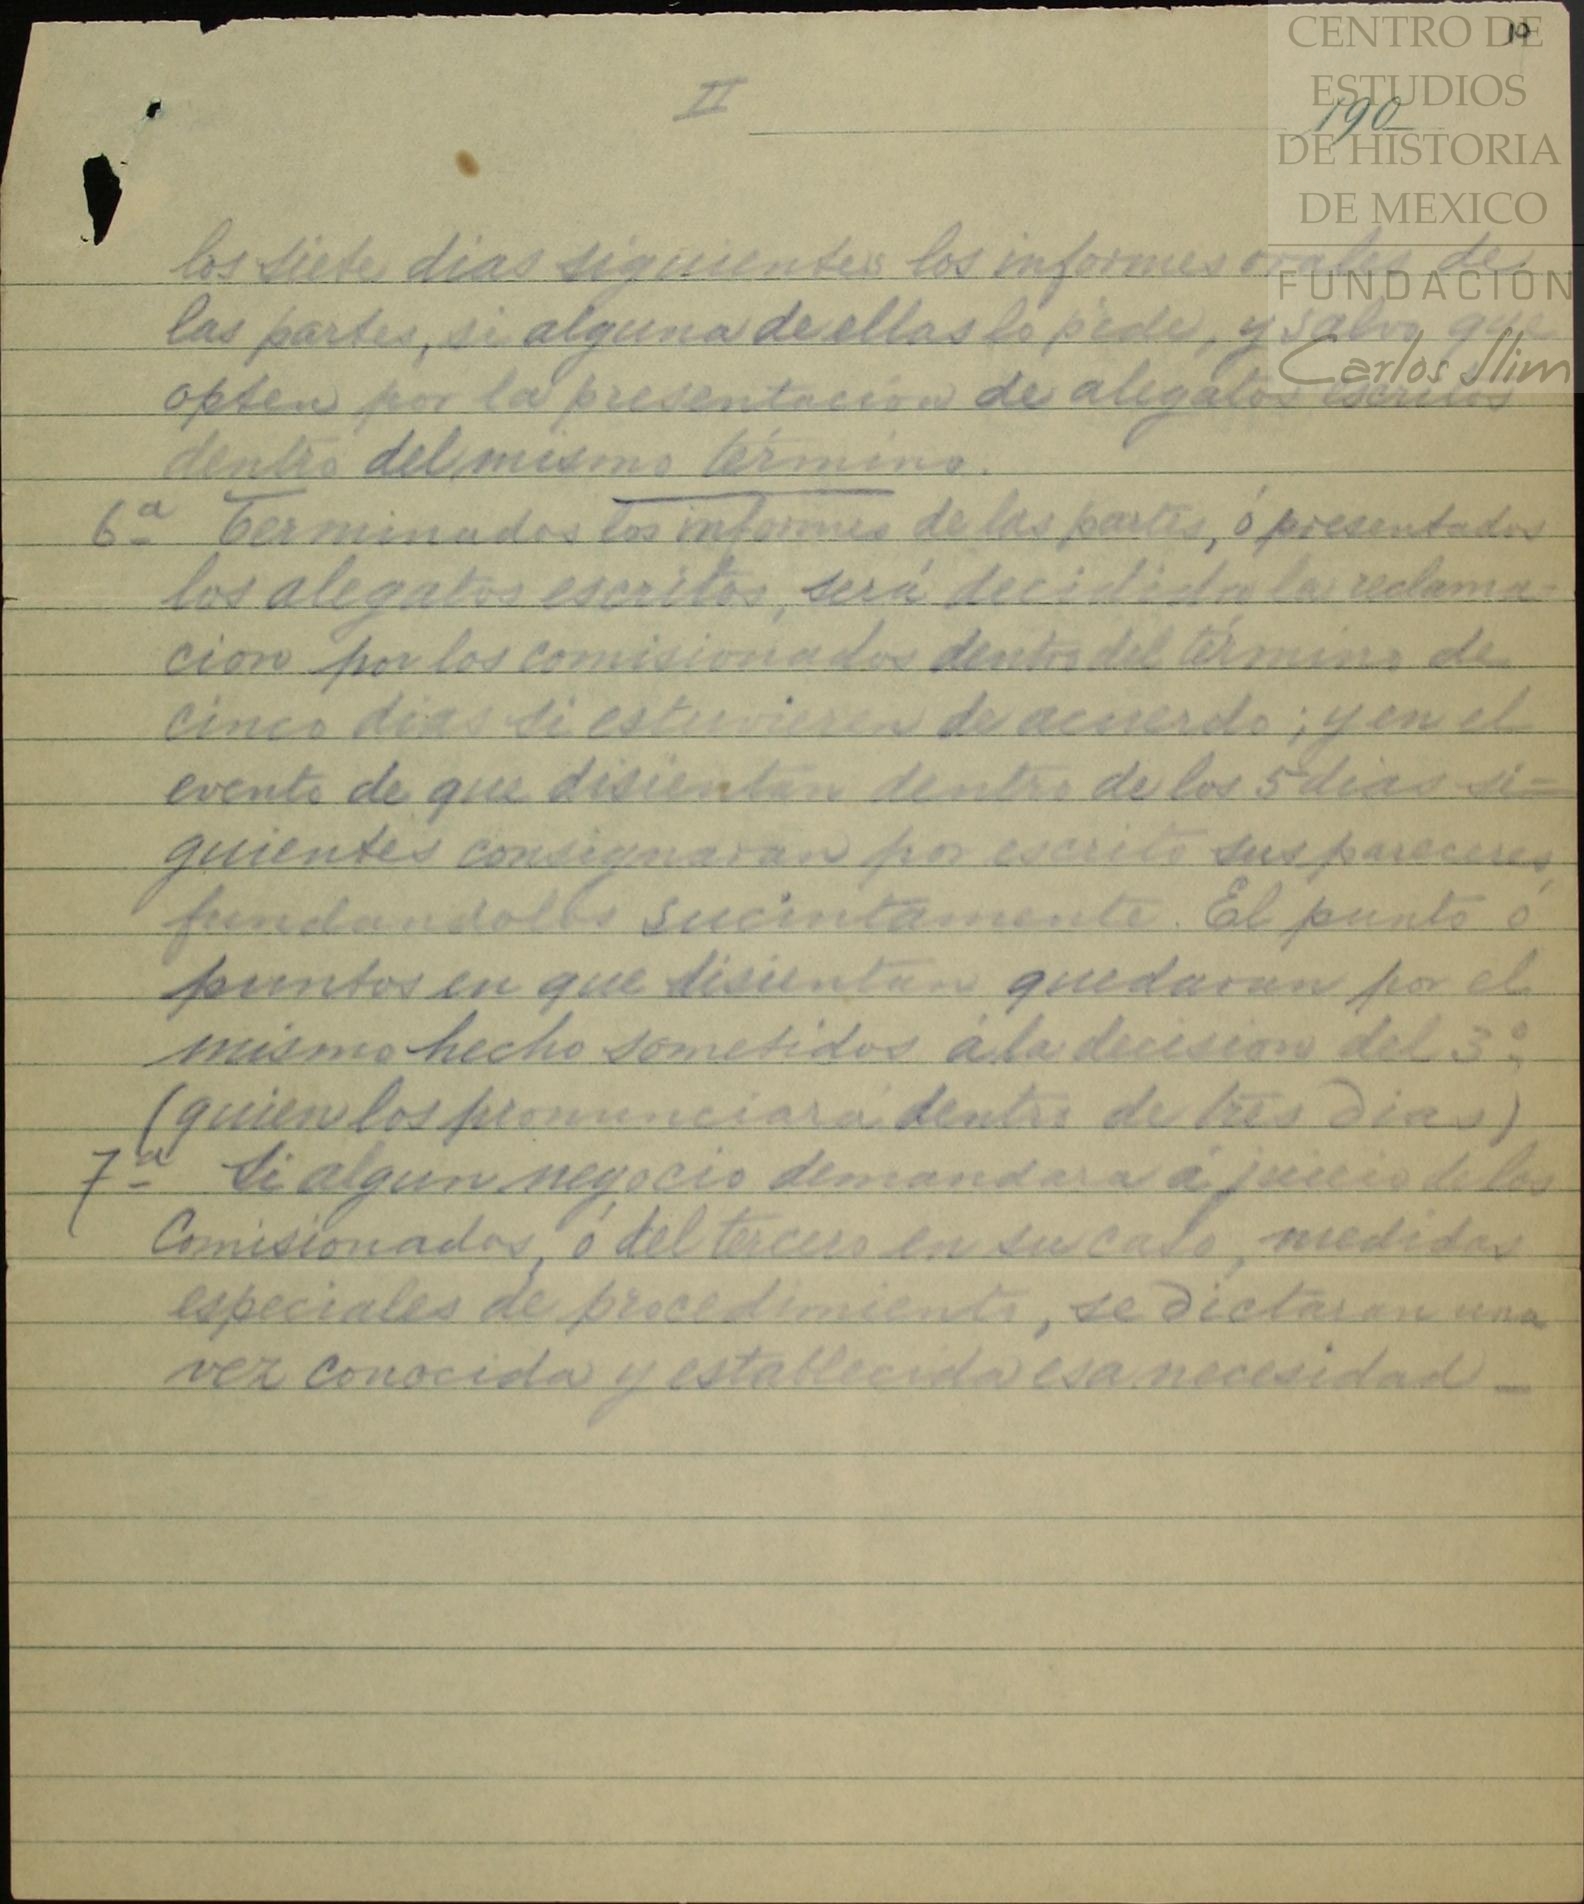 10
II
190
CENTRO DE
ESTUDIOS
DE HISTORIA
DE MEXICO
FUNDACIÓN
Carlos Slim
los siete dias siguientes los informes orales de
las partes, si alguna de ellas lo pide, y salvo que
opten por la presentacion de alegatos escritos
dentro del mismo término.
6ª Terminados los informes de las partes, ó presentados
los alegatos escritos, será decidida la reclama-
cion por los comisionados dentro del término de
cinco dias si estuvieren de acuerdo; y en el
evento de que disientan dentro de los 5 dias si=
guientes consignaran por escrito sus pareceres,
fundandolos sucintamente. El punto ó
puntos en que disientan quedaran por el
mismo hecho sometidos á la decision del 3º
(quien los pronunciará dentro de tres dias)
7ª Si algun negocio demandara á juicio de los
Comisionados, ó del tercero en su caso, medidas
especiales de procedimiento, se dictaran una
vez conocida y establecida esa necesidad —